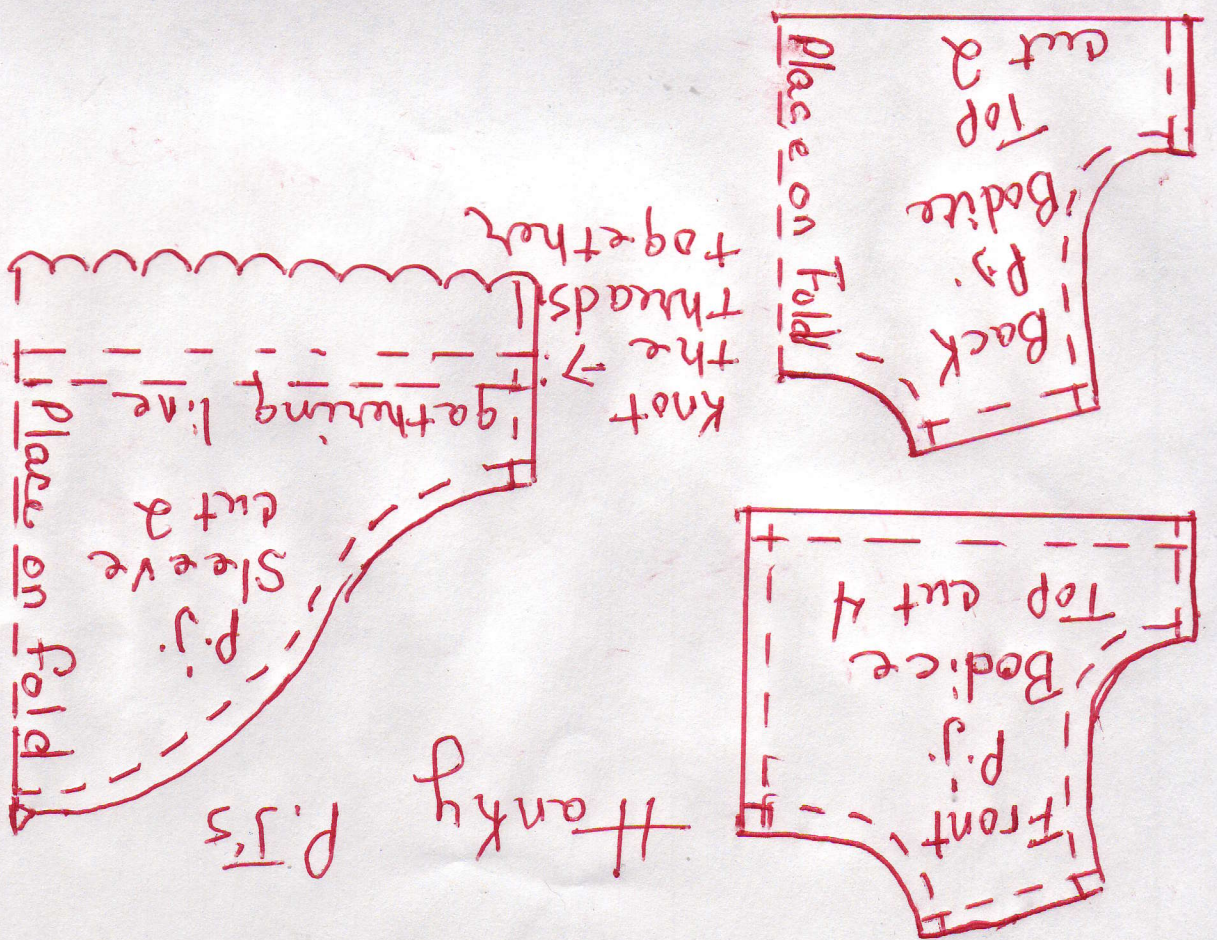 Hanky
P.J's
Front
P.J.
Bodice
Top cut 4
Place on fold
P.J.
Sleeve
cut 2
gathering line
Knot
the →
threads
together
Back
P.J.
Bodice
Top
cut 2
Place on Fold